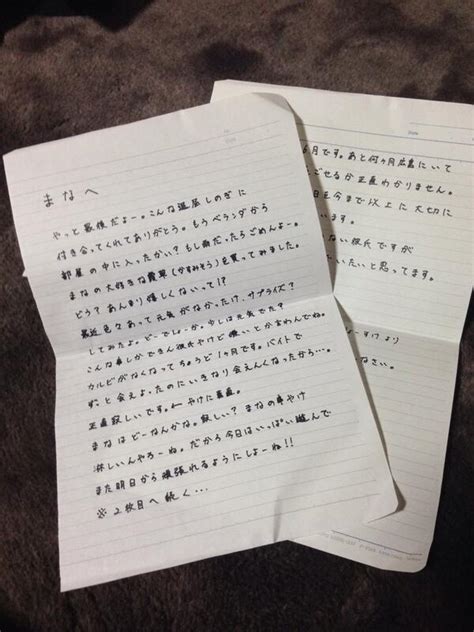 まなへ
やっと最後だよー。こんな退屈しのぎに
付き合ってくれてありがとう。もうベランダから
部屋の中に入ったかい？もし雨だったらごめんよー。
まなの大好きな霞草(かすみそう)を買ってみました。
どう？あんまり嬉しくないって!?
最近色々あって元気がなかったけ、サプライズ？
してみたよ。どーでしょーか。少しは元気でた？
こんな事しかできん彼氏やけど嫌いとか言わんでね。
カルビがなくなってちょうど1ヶ月です。バイトで
ずっと会えよったのにいきなり会えんくなったから…。
正直寂しいです。← やけに素直。
まなはどーなんかな。寂しい？まなの事やけ
淋しいんやろーね。だから今日はいっぱい遊んで
また明日から頑張れるようにしよーね!!
※2枚目へ続く…
Date
6月です。あと何ヶ月広島にいて
ごせるか正直わかりません。
日を今まで以上に大切に
います。
ない彼氏ですが
いたいと思ってます。
ーすけより
なさい。